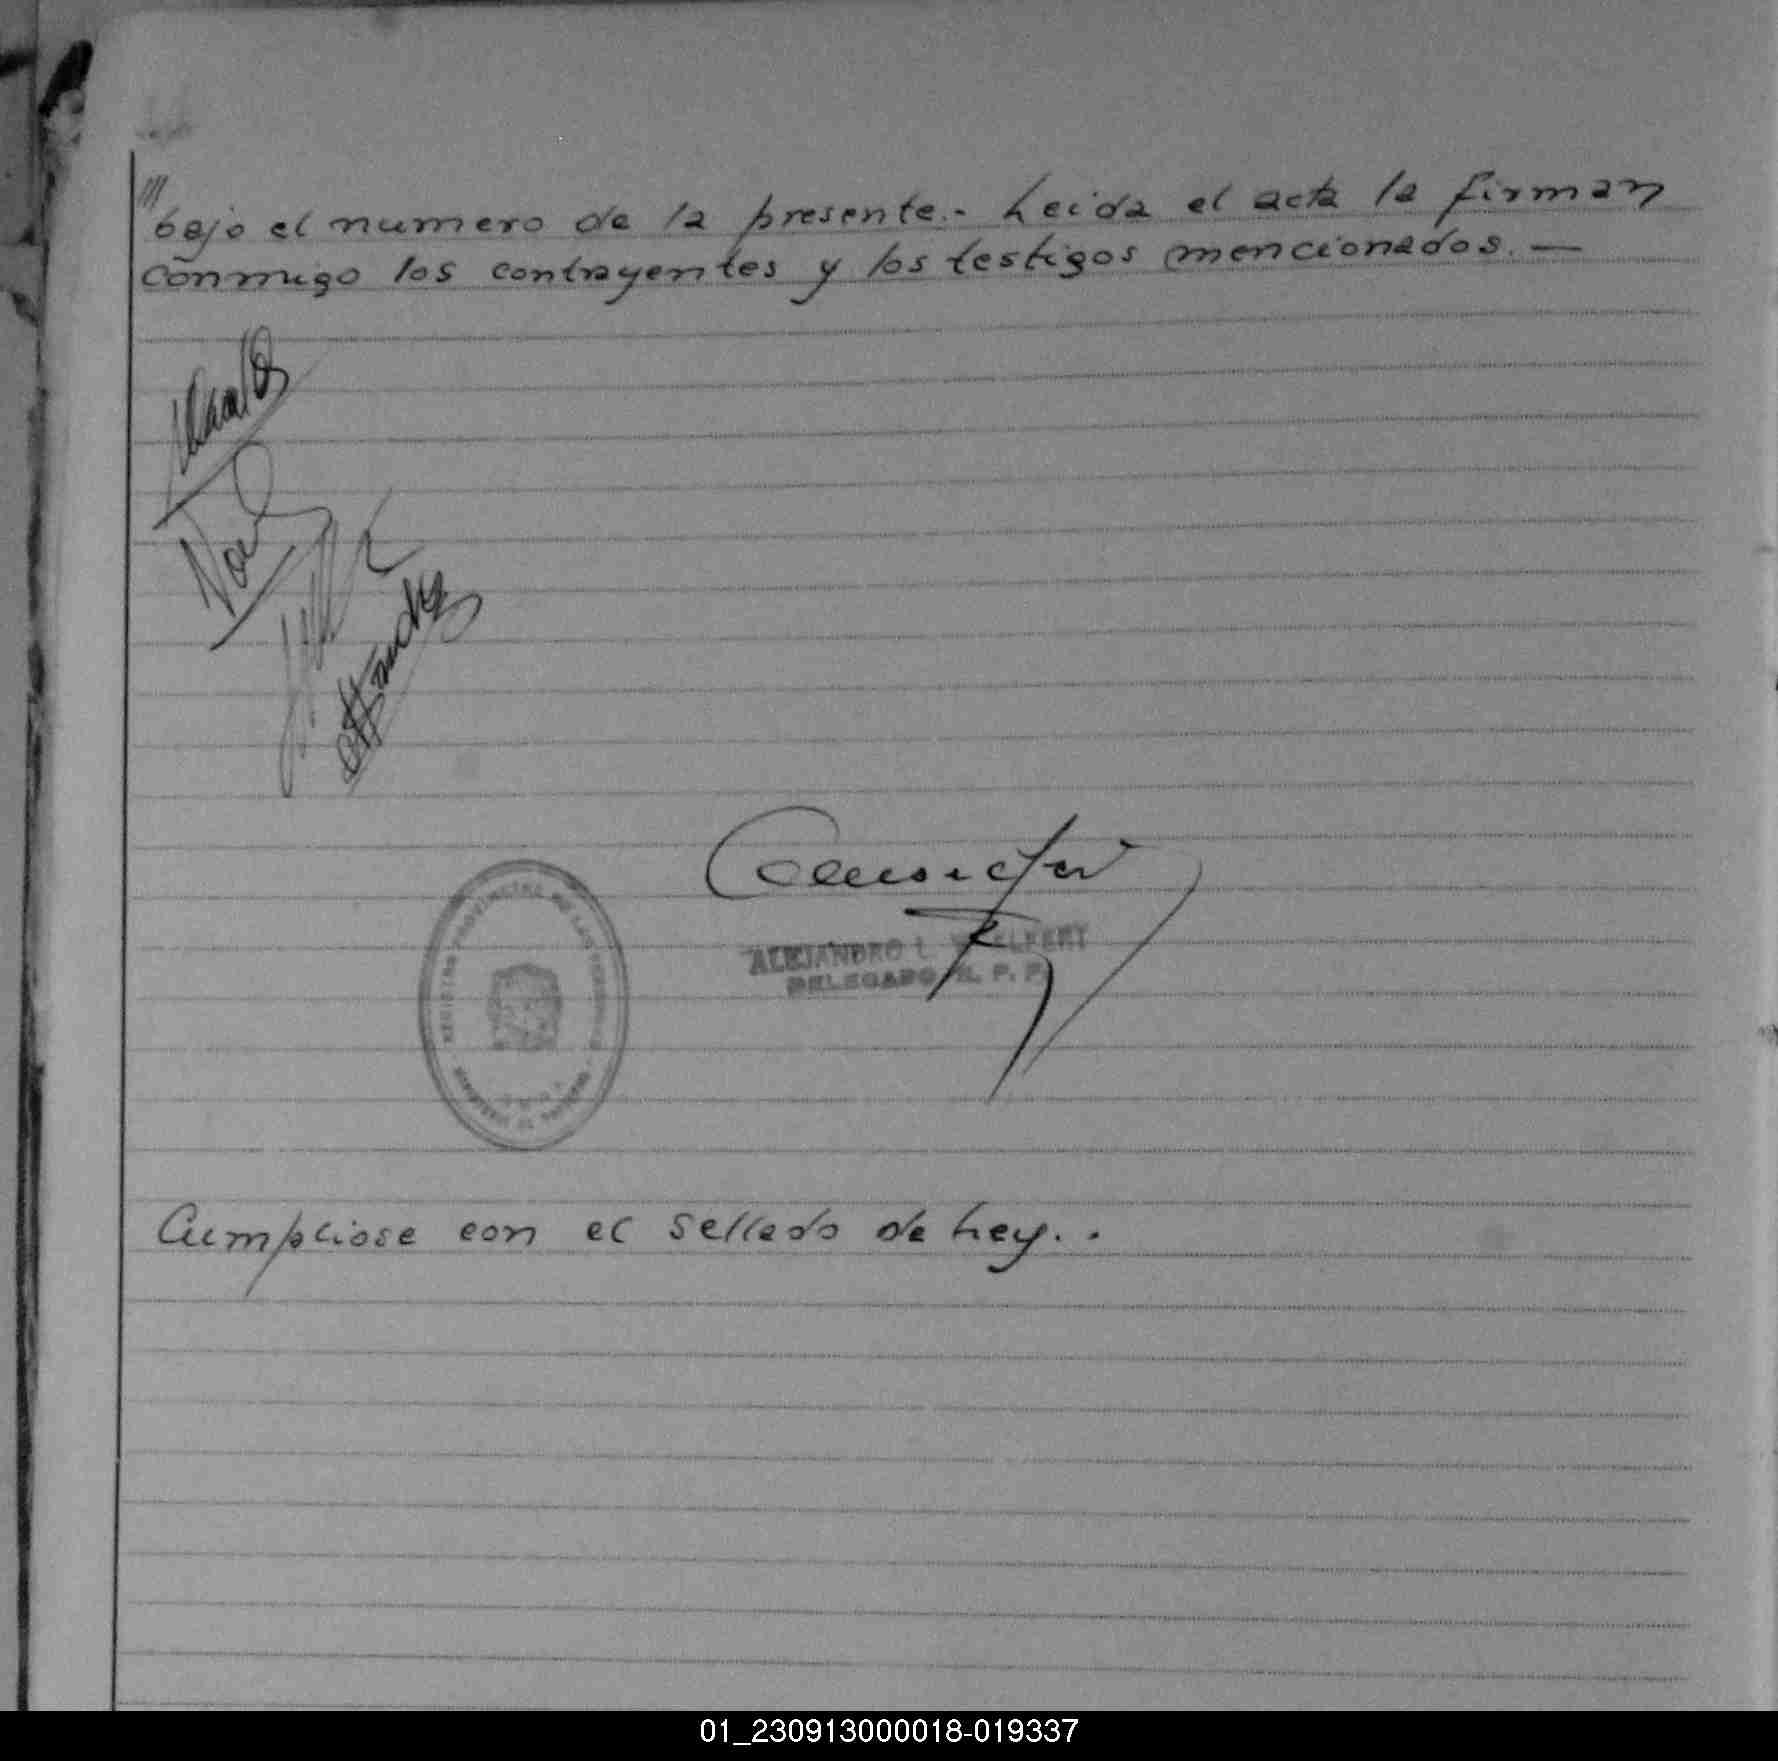 /// bajo el numero de la presente.- Leida el acta la firman
conmigo los contrayentes y los testigos mencionados. —
ALEJANDRO L.
DELEGADO R. P. P.
Cumpliose con el sellado de Ley. .
01_230913000018-019337